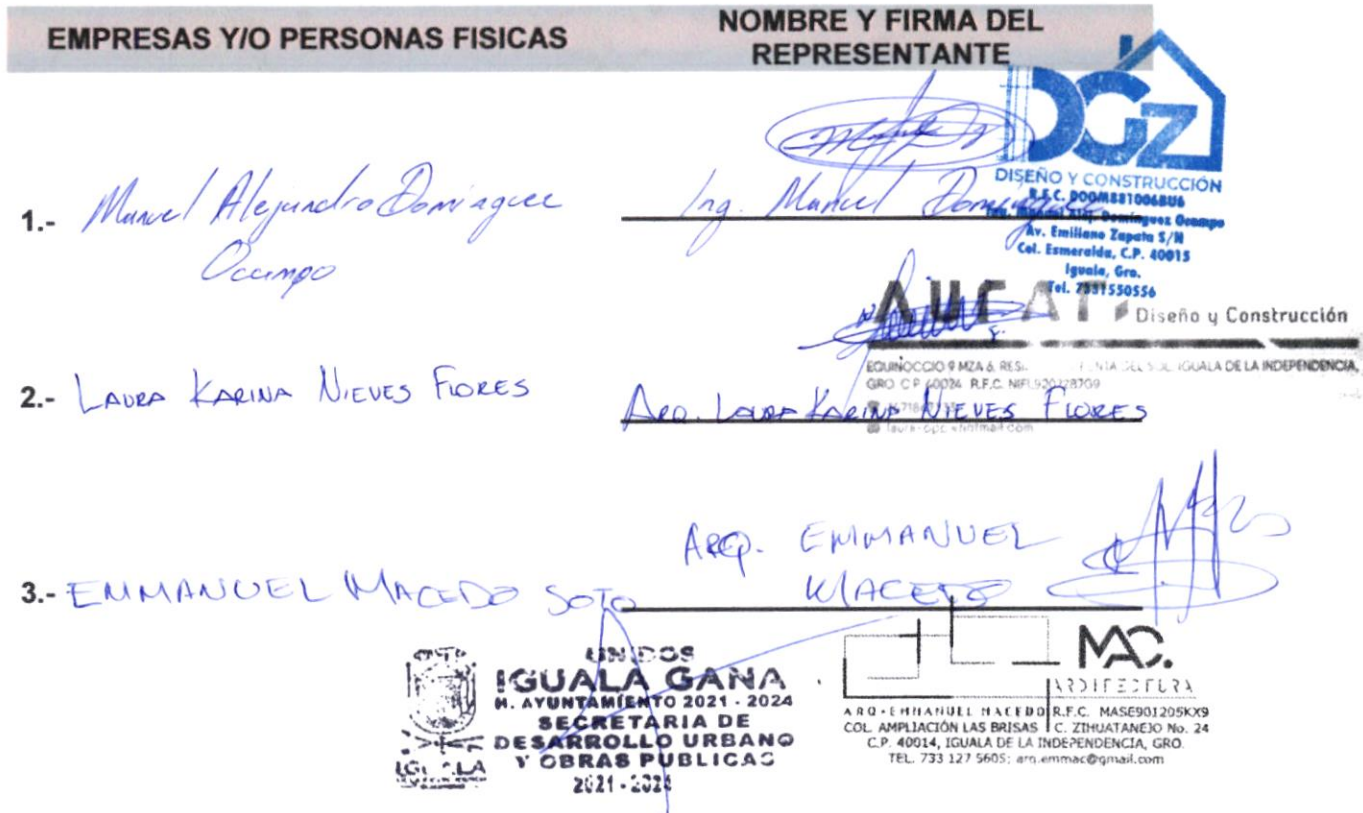 EMPRESAS Y/O PERSONAS FISICAS
NOMBRE Y FIRMA DEL
REPRESENTANTE
DGZ
DISEÑO Y CONSTRUCCIÓN
R.F.C. DOOM881006BU6
Domínguez Ocampo
Av. Emiliano Zapata S/N
Col. Esmeralda, C.P. 40015
Iguala, Gro.
Tel. 7331550556
1.- Manuel Alejandro Dominguez
Ocampo
Ing. Manuel Dominguez
Diseño y Construcción
EQUINOCCIO 9 MZA 6, DEL SOL, IGUALA DE LA INDEPENDENCIA,
GRO. C.P. 40024 R.F.C.
2.- LAURA KARINA NIEVES FLORES
ARQ. LAURA KARINA NIEVES FLORES
3.- EMMANUEL MACEDO SOTO
ARQ. EMMANUEL
MACEDO
UNIDOS
IGUALA GANA
H. AYUNTAMIENTO 2021 - 2024
SECRETARIA DE
DESARROLLO URBANO
Y OBRAS PUBLICAS
2021 - 2024
IGUALA
MAC.
ARQUITECTURA
ARQ. EMMANUEL MACEDO R.F.C. MASE901205KX9
COL. AMPLIACIÓN LAS BRISAS C. ZIHUATANEJO No. 24
C.P. 40014, IGUALA DE LA INDEPENDENCIA, GRO.
TEL. 733 127 5605; arq.emmac@gmail.com